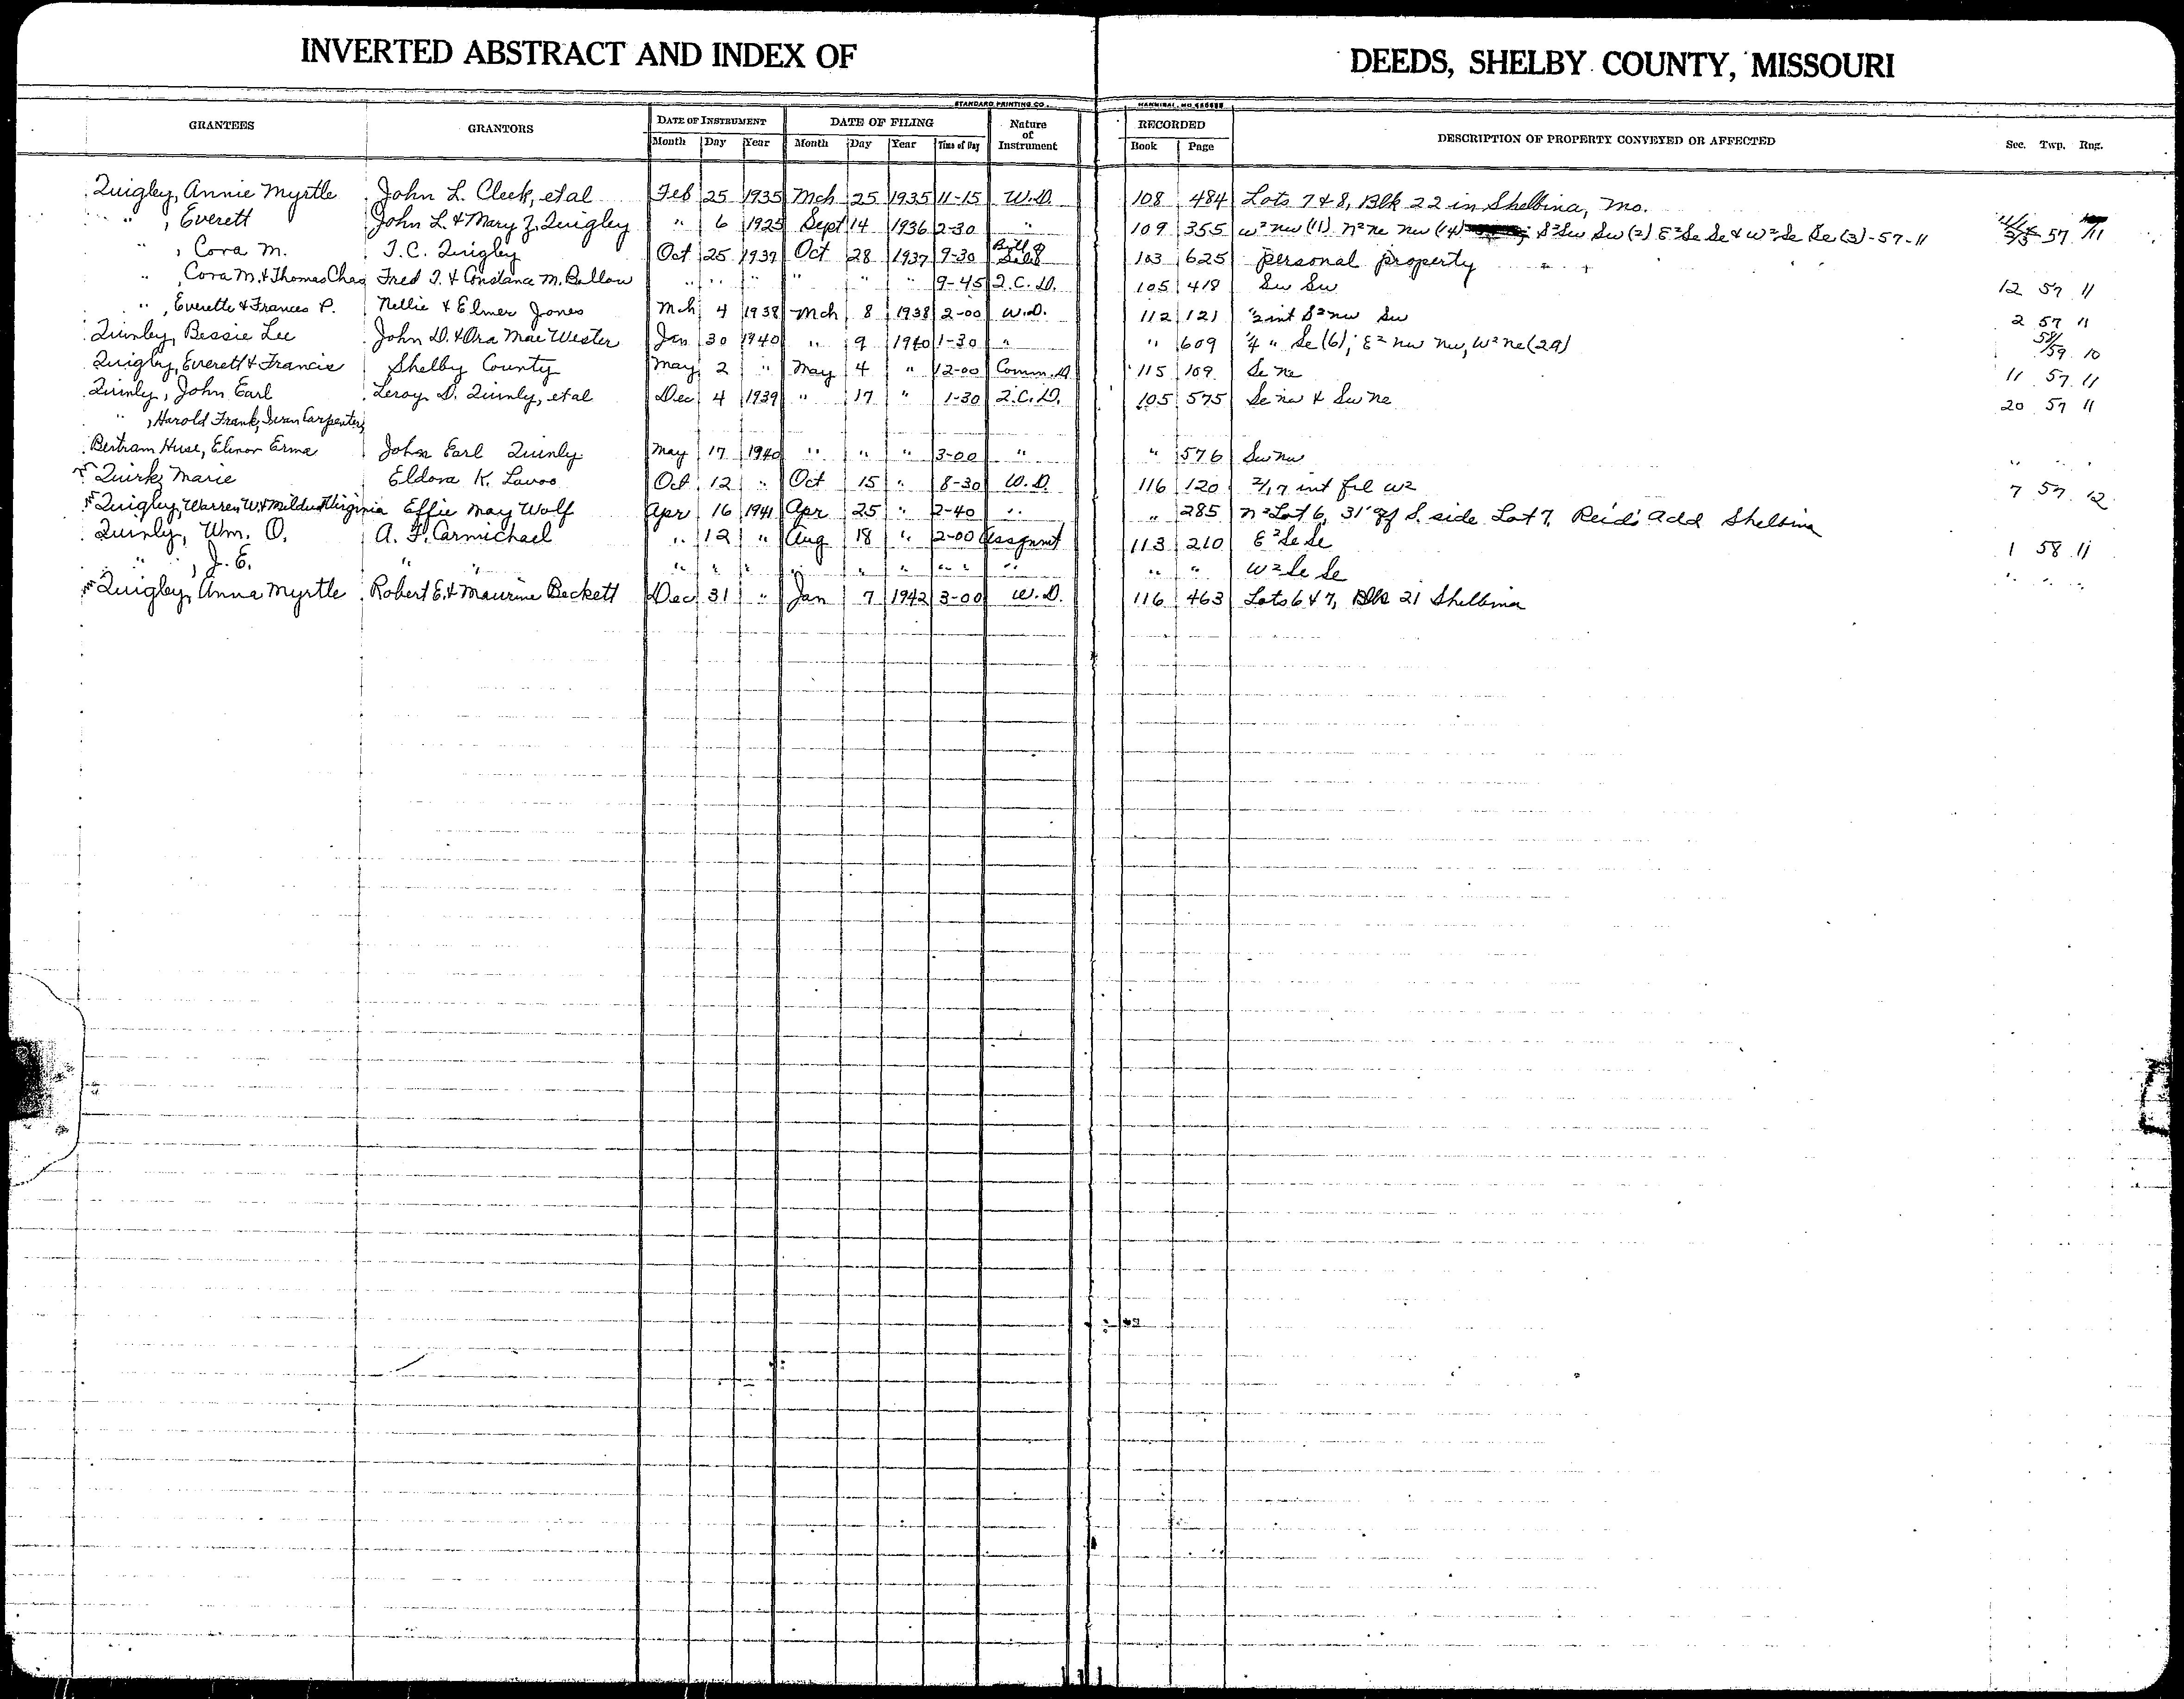 INVERTED ABSTRACT AND INDEX OF DEEDS, SHELBY COUNTY, MISSOURI
STANDARD PRINTING CO. HANNIBAL, MO.
GRANTEES GRANTORS DATE OF INSTRUMENT DATE OF FILING Nature of Instrument RECORDED DESCRIPTION OF PROPERTY CONVEYED OR AFFECTED Sec. Twp. Rng.
Month Day Year Month Day Year Time of Day Book Page
Quigley, Annie Myrtle John L. Cleek, et al Feb 25 1935 Mch 25 1935 11-15 W.D. 108 484 Lots 7 & 8, Blk 22 in Shelbina, Mo.
" , Everett John L. & Mary Z. Quigley " 6 1925 Sept 14 1936 2-30 " 109 355 W² nw (11) N² ne nw (14) S² Sw Sw (2) E² Se Se & W² Se Se (3)-57-11 57 11
" , Cora M. T.C. Quigley Oct 25 1937 Oct 28 1937 9-30 Bill of Sale 103 625 personal property
" , Cora M. & Thomas Chas Fred T. & Constance M. Ballow " " " " " " 9-45 Q.C.D. 105 418 Sw Sw 12 57 11
" , Everette & Frances P. Nellie & Elmer Jones Mch 4 1938 Mch 8 1938 2-00 W.D. 112 121 ½ int S² nw Sw 2 57 11
Quinley, Bessie Lee John D. & Ora Mae Wester Jan 30 1940 " 9 1940 1-30 " " 609 ¼ " Se (6); E² nw nw, W² ne (29) 58/59 10
Quigley, Everett & Francis Shelby County May 2 " May 4 " 12-00 Comm. D 115 109 Se ne 11 57 11
Quinly, John Earl Leroy D. Quinly, et al Dec 4 1939 " 17 " 1-30 Q.C.D. 105 575 Se nw & Sw ne 20 57 11
" , Harold Frank, Carpenter,
Bertram Huse, Elinor Erma John Earl Quinly May 17 1940 " " " 3-00 " " 576 Sw nw " " "
Quirk, Marie Eldora K. Lavoo Oct 12 " Oct 15 " 8-30 W.D. 116 120 2/17 int frl W² 7 57 12
Quigley, Warren W. & Mildred Virginia Effie May Wolf Apr 16 1941 Apr 25 " 2-40 " " 285 N² Lot 6, 31' off S. side Lot 7, Reid's Add Shelbina
Quinly, Wm. O. A. F. Carmichael " 12 " Aug 18 " 2-00 Assgnmt 113 210 E² Se Se 1 58 11
" , J. E. " " " " " " " " " " " " " W² Se Se " " "
Quigley, Anna Myrtle Robert E. & Maurine Beckett Dec 31 " Jan 7 1942 3-00 W.D. 116 463 Lots 6 & 7, Blk 21 Shelbina